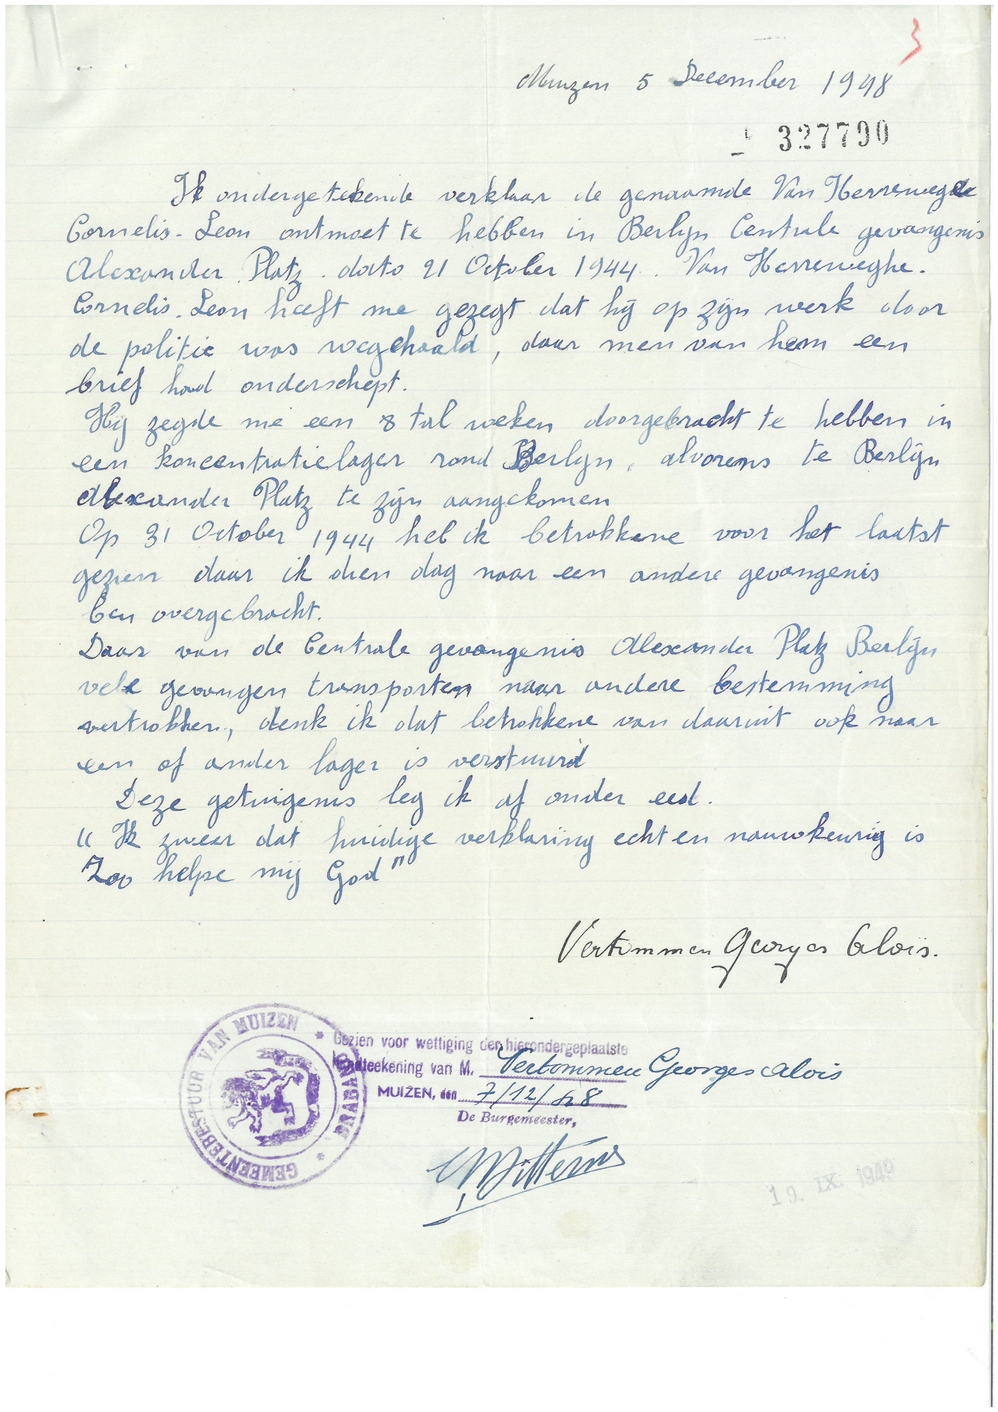 3
Muizen 5 December 1948
327790
Ik ondergetekende verklaar de genaamde Van Herreweghe
Cornelis-Leon ontmoet te hebben in Berlijn Centrale gevangenis
Alexander Platz. dato 21 October 1944. Van Herreweghe.
Cornelis.Leon heeft me gezegt dat hij op zijn werk door
de politie was weggehaald, daar men van hem een
brief had onderschept.
Hij zegde me een 8 tal weken doorgebracht te hebben in
een koncentratielager rond Berlijn, alvorens te Berlijn
Alexander Platz te zijn aangekomen
Op 31 October 1944 heb ik betrokkene voor het laatst
gezien daar ik dien dag naar een andere gevangenis
ben overgebracht.
Daar van de Centrale gevangenis Alexander Platz Berlijn
vele gevangen transporten naar andere bestemming
vertrokken, denk ik dat betrokkene van daaruit ook naar
een of ander lager is verstuurd
Deze getuigenis leg ik af onder eed.
"Ik zweer dat huidige verklaring echt en nauwkeurig is
Zoo helpe mij God"
Vertommen Georges Aloïs.
GEMEENTEBESTUUR VAN MUIZEN * BRABANT *
Gezien voor wettiging der hierondergeplaatste
handteekening van M. Vertommen Georges Alois
MUIZEN, den 7/12/48
De Burgemeester,
19. IX. 1949